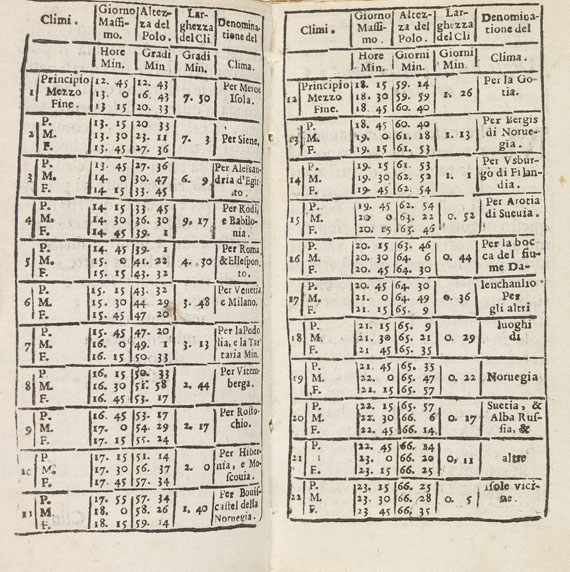 Climi. Giorno Massimo. Altezza del Polo. Larghezza del Cli Denominatione del
Hore Min. Gradi Min. Gradi Min. Clima.
1 Principio 12. 45 12. 43 7. 50 Per Meroe
Mezzo 13. 0 16. 43 Isola.
Fine. 13 15 20. 33
2 P. 13. 15 20 33 7. 3 Per Siene,
M. 13. 30 23. 11
F. 13. 45 27. 36
3 P. 13. 45 27. 36 6. 9 Per Alessan-
M. 14 0 30. 47 dria d'Egit-
F. 14 15 33. 45 to.
4 P. 14 15 33. 45 9. 17 Per Rodi,
M. 14 30 36. 30 e Babilo-
F. 14 45 39. 1 nia.
5 P. 14 45 39. 1 4. 30 Per Roma
M. 15 0 41. 22 & Ellespon.
F. 15 15 43. 32 to.
6 P. 15. 15 43. 32 3. 48 Per Venetia
M. 15. 30 44 29 e Milano.
F. 15. 45 47 20
7 P. 15. 45 47. 20 3. 13 Per la Podo
M. 16 0 49. 1 lia, e la Tar
F. 16 15 50. 33 taria Min.
8 P. 16 15 50. 33 2. 44 Per Vitem-
M. 16 30 51. 58 berga.
F. 16 45 53. 17
9 P. 16. 45 53. 17 2. 17 Per Rosto-
M. 17 0 54. 29 chio.
F. 17 15 55. 24
10 P. 17. 15 51. 14 2. 0 Per Hiber
M. 17 30 56. 37 nia, e Mo-
F. 17 45 57. 34 scouia.
11 P. 17. 55 57. 34 1. 40 Per
M. 18. 0 58. 26 castel della
F. 18. 15 59. 14 Noruegia.
Climi. Giorno Massimo. Altezza del Polo. Larghezza del Cli Denominatione del
Hore Min. Giorni Min. Giorni Min. Clima.
12 Principio 18. 15 59. 14 1. 26 Per la Go-
Mezzo 18. 30 59. 59 tia.
Fine. 18. 45 60. 40
13 P. 18. 45 60. 40 1. 13 Per Bergis
M. 19. 0 61. 18 di Norue-
F. 19. 15 61. 53 gia.
14 P. 19. 15 61. 53 1. 1 Per Vsbur-
M. 19. 30 62. 52 go di Filan-
F. 19. 45 62. 54 dia.
15 P. 19. 45 62. 54 0. 52 Per Arotia
M. 20 0 63. 22 di Sueuia.
F. 20. 15 63. 46
16 P. 20. 15 63. 46 0. 44 Per la boc
M. 20. 30 64. 6 ca del fiu-
F. 20. 45 64. 30 me Da-
17 P. 20. 45 64. 30 0. 36 lenchanlio
M. 21. 0 64. 49 Per
F. 21. 15 65. 9 gli altri
18 P. 21. 15 65. 9 0. 29 luoghi
M. 21. 30 65. 21 di
F. 21 45 65. 35
19 P. 21. 45 65. 35 0. 22 Noruegia
M. 22. 0 65. 47
F. 22. 15 65. 57
20 P. 22. 15 65. 57 0. 17 Suetia, &
M. 22. 30 66. 6 Alba Rus-
F. 22. 45 66. 14 sia, &
21 P. 22. 45 66. 14 0, 11 altre
M. 23. 0 66. 20
F. 23. 15 66. 25
22 P. 23. 15 66. 25 0. 5 Isole vici-
M. 23. 30 66. 28 ne.
F. 23 45 66. 35